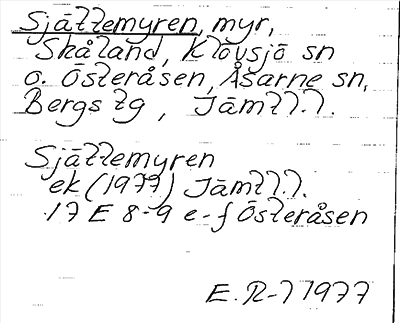 Sjättemyren, myr,
Skåland, Klövsjö sn
o. Österåsen, Åsarne sn,
Bergs tg, Jämtl.
Sjättemyren
ek (1977) Jämtl.
17 E 8-9 e-f Österåsen
E. R-l 1977